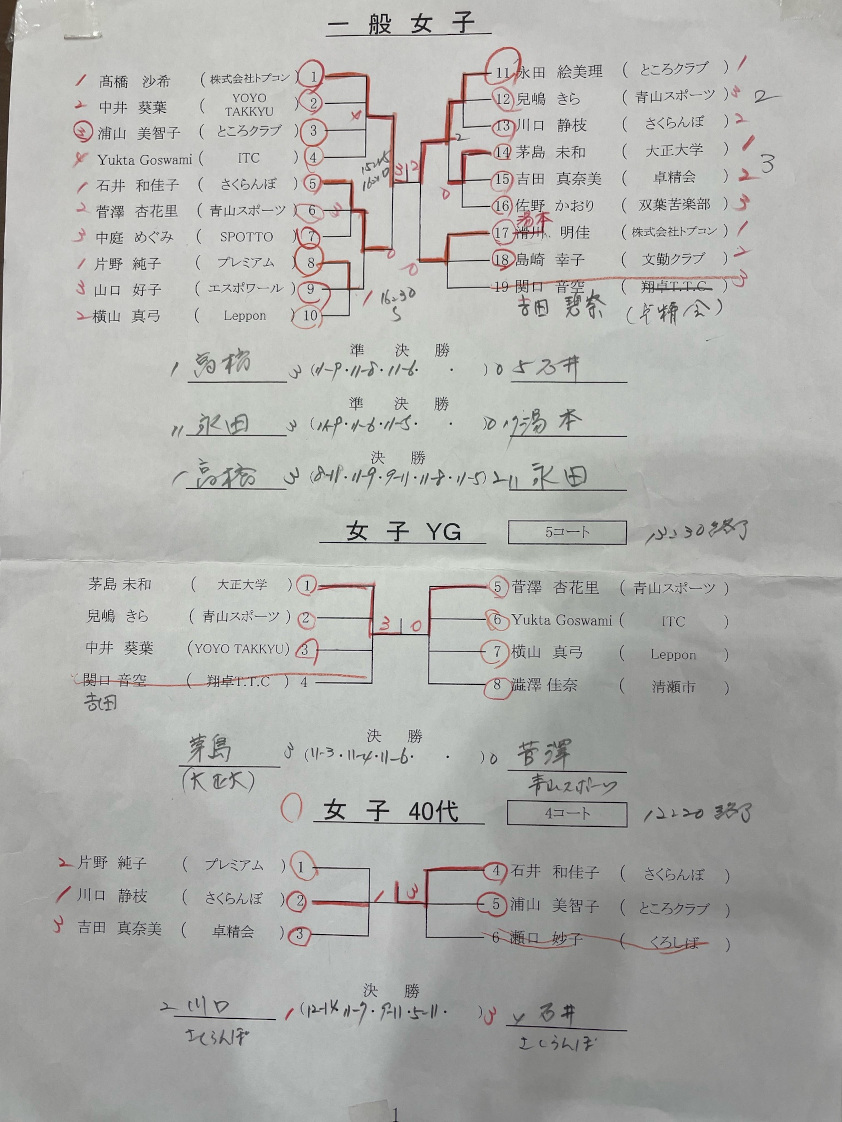 一般女子
1 髙橋 沙希 (株式会社トプコン) 1
2 中井 葵葉 (YOYO TAKKYU) 2
3 浦山 美智子 (ところクラブ) 3
4 Yukta Goswami (ITC) 4
1 石井 和佳子 (さくらんぼ) 5
2 菅澤 杏花里 (青山スポーツ) 6
3 中庭 めぐみ (SPOTTO) 7
1 片野 純子 (プレミアム) 8
3 山口 好子 (エスポワール) 9
2 横山 真弓 (Leppon) 10
11 永田 絵美理 (ところクラブ) 1
12 兒嶋 きら (青山スポーツ) 3 2
13 川口 静枝 (さくらんぼ) 2
14 茅島 未和 (大正大学) 1
15 吉田 真奈美 (卓精会) 2 3
16 佐野 かおり (双葉苦楽部) 3
湯本
17 滑川 明佳 (株式会社トプコン) 1
18 島崎 幸子 (文勤クラブ) 2
19 関口 音空 (翔卓T.T.C) 3
吉田 碧奈 (卓精会)
3 2
0
0
準決勝
1 高橋 3 (11-9・11-8・11-6・ ・ ) 0 5 石井
準決勝
11 永田 3 (11-9・11-6・11-5・ ・ ) 0 17 湯本
決勝
1 高橋 3 (8-11・11-9・9-11・11-8・11-5) 2 11 永田
女子 YG 5コート 終了
茅島 未和 (大正大学) 1
兒嶋 きら (青山スポーツ) 2
中井 葵葉 (YOYO TAKKYU) 3
関口 音空 (翔卓T.T.C) 4
吉田
3 0
5 菅澤 杏花里 (青山スポーツ)
6 Yukta Goswami (ITC)
7 横山 真弓 (Leppon)
8 澁澤 佳奈 (清瀬市)
決勝
茅島 3 (11-3・11-4・11-6・ ・ ) 0 菅澤
(大正大) 青山スポーツ
女子 40代 4コート 12:20 終了
2 片野 純子 (プレミアム) 1
1 川口 静枝 (さくらんぼ) 2
3 吉田 真奈美 (卓精会) 3
1 3
4 石井 和佳子 (さくらんぼ)
5 浦山 美智子 (ところクラブ)
6 瀬口 妙子 (くろしぼ)
決勝
2 川口 1 (12-14・11-9・9-11・5-11・ ) 3 4 石井
さくらんぼ さくらんぼ
1